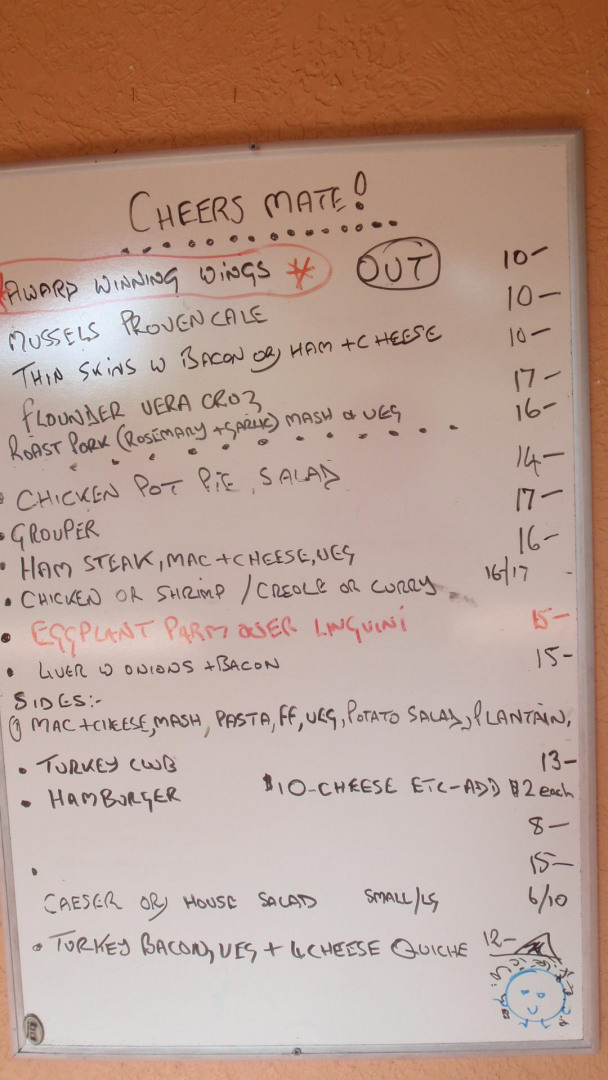 CHEERS MATE!
AWARD WINNING WINGS * OUT 10-
MUSSELS PROVENCALE 10-
THIN SKINS W BACON OR HAM + CHEESE 10-
FLOUNDER VERA CROZ 17-
ROAST PORK (ROSEMARY + GARLIC) MASH & VEG 16-
• CHICKEN POT PIE, SALAD 14-
• GROUPER 17-
• HAM STEAK, MAC + CHEESE, VEG 16-
• CHICKEN OR SHRIMP / CREOLE OR CURRY 16/17
• EGGPLANT PARM OVER LINGUINI 15-
• LIVER W ONIONS + BACON 15-
SIDES:-
MAC + CHEESE, MASH, PASTA, FF, VEG, POTATO SALAD, PLANTAIN,
• TURKEY CLUB 13-
• HAMBURGER $10-CHEESE ETC-ADD $2 each
8-
• 15-
CAESER OR HOUSE SALAD SMALL/LG 6/10
• TURKEY BACON, VEG + 4 CHEESE QUICHE 12-